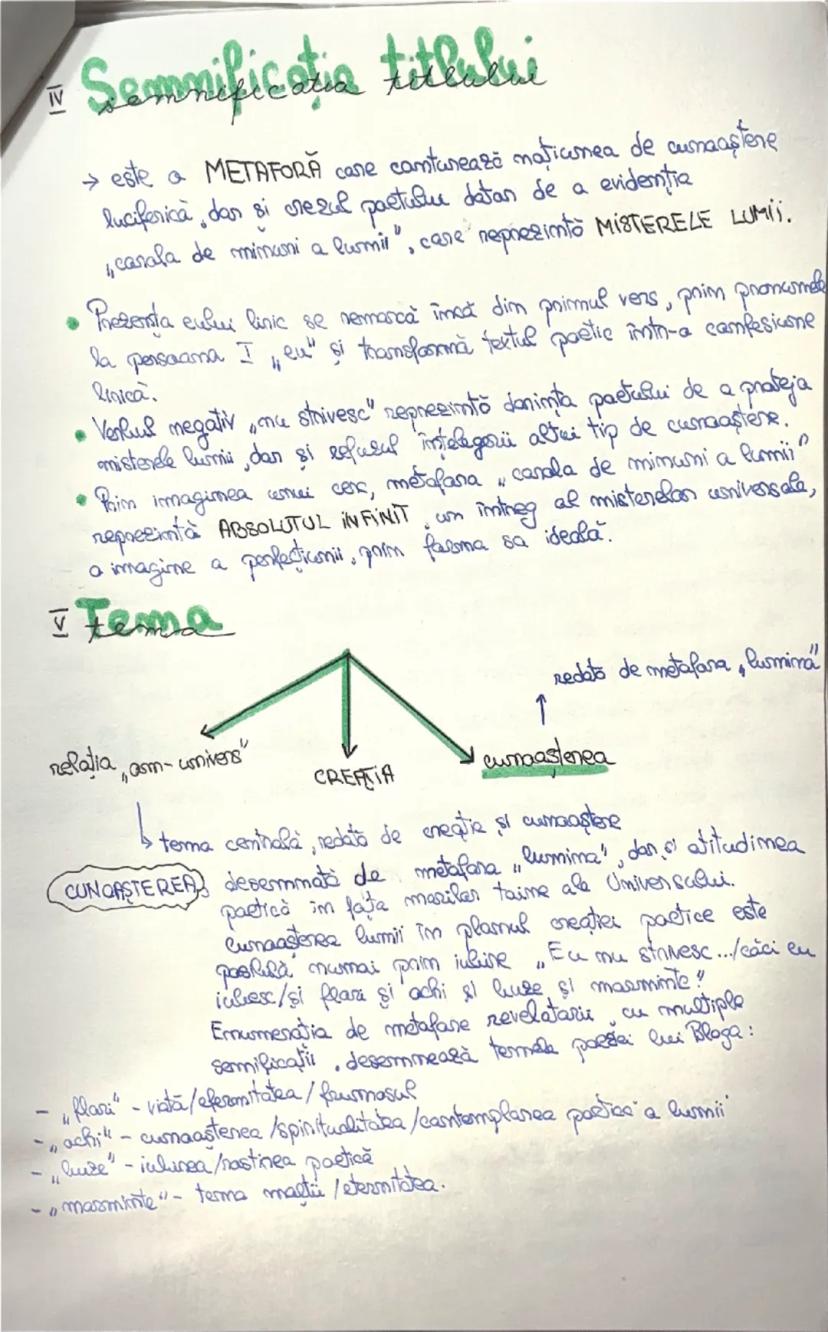 IV Semnificația titlului
semnificatia titlului
→ este o METAFORĂ care conturează noțiunea de cunoaștere
luciferică, dar și crezul poetului dator de a evidenția
„corola de minuni a lumii", care reprezintă MISTERELE LUMII.
• Prezența eului liric se remarcă încă din primul vers, prin pronumele
la persoana I „eu" și transformă textul poetic într-o confesiune
lirică.
• Verbul negativ „nu strivesc" reprezintă dorința poetului de a proteja
misterele lumii, dar și refuzul înțelegerii altui tip de cunoaștere.
• Prin imaginea unui cerc, metafora „corola de minuni a lumii"
reprezintă ABSOLUTUL INFINIT, un întreg al misterelor universale,
o imagine a perfecțiunii, prin forma sa ideală.
V Tema
tema
redată de metafora „lumină"
relația „om-univers"
CREAȚIA
cunoașterea
tema centrală, redată de creație și cunoaștere
CUNOAȘTEREA → desemnată de metafora „lumina", dar și atitudinea
poetică în fața marilor taine ale Universului.
Cunoașterea lumii în planul creației poetice este
posibilă numai prin iubire „Eu nu strivesc.../căci eu
iubesc/și flori și ochi și buze și morminte."
Enumerația de metafore revelatorii, cu multiple
semificații, desemnează temele poeziei lui Blaga:
- „flori" - viață/efermitatea/frumosul
- „ochi" - cunoașterea/spiritualitatea/contemplarea poetică a lumii
- „buze" - iubirea/rostirea poetică
- „morminte" - tema morții/eternitatea.